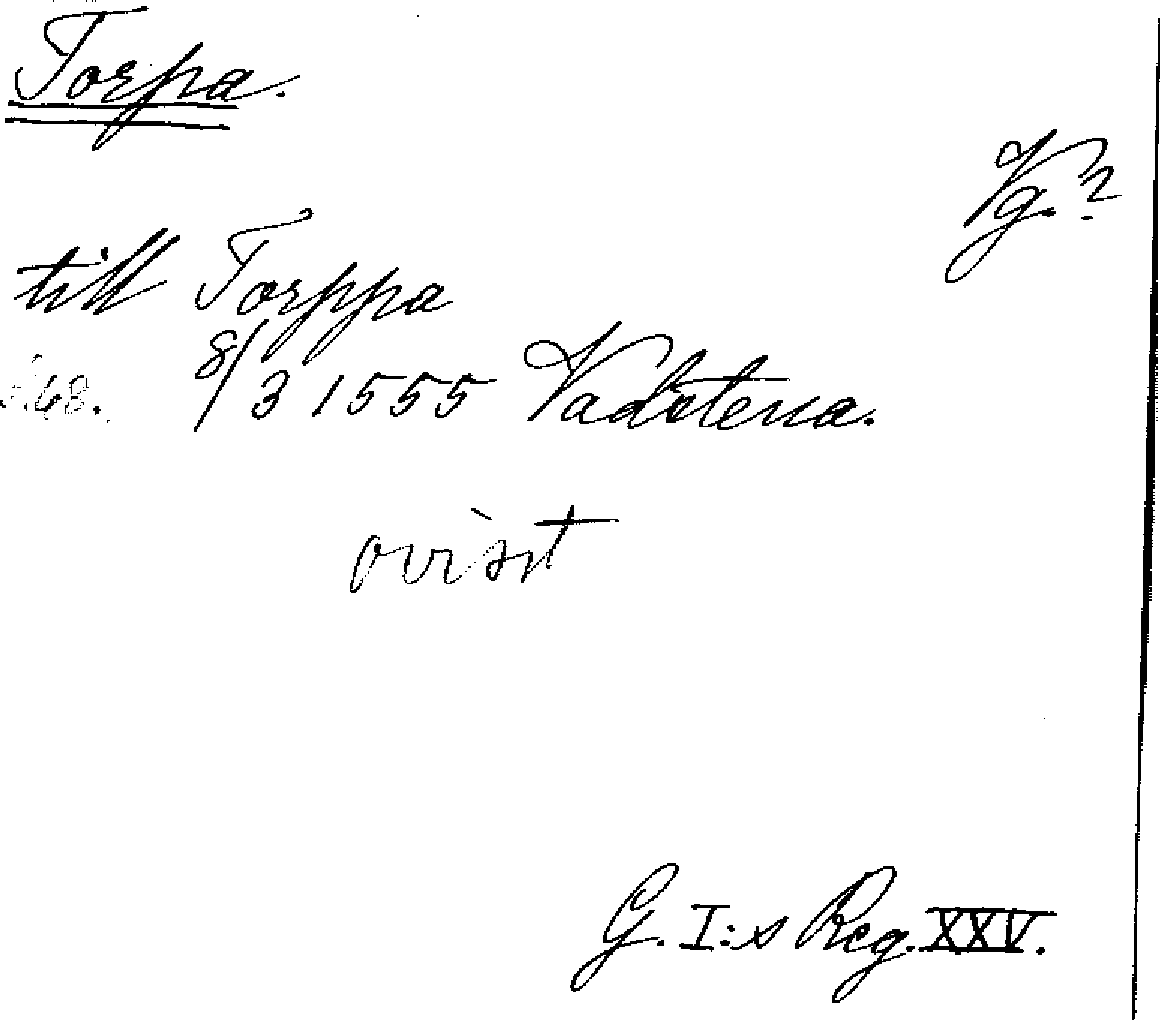 Torpa.
Vg.?
till Torppa
s. 68. 8/3 1555 Vadstena.
ovisst
G. I:s Reg. XXV.